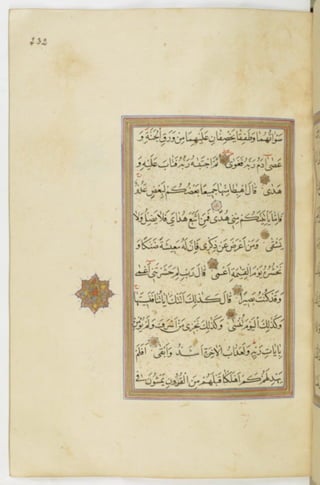 سوآتهما وطفقا يخصفان عليهما من ورق الجنة و
عصى آدم ربه فغوى ثم اجتبيه ربه فتاب عليه و
هدى قال اهبطا منها جميعا بعضكم لبعض عدو
فاما ياتينكم مني هدى فمن اتبع هداي فلا يضل ولا
يشقى ومن اعرض عن ذكري فان له معيشة ضنكا و
نحشره يوم القيمة اعمى قال رب لم حشرتني اعمى
وقد كنت بصيرا قال كذلك اتتك آياتنا فنسيتها
وكذلك اليوم تنسى وكذلك نجزي من اسرف ولم يؤمن
بايات ربه ولعذاب الآخرة اشد وابقى افلم
يهد لهم كم اهلكنا قبلهم من القرون يمشون في